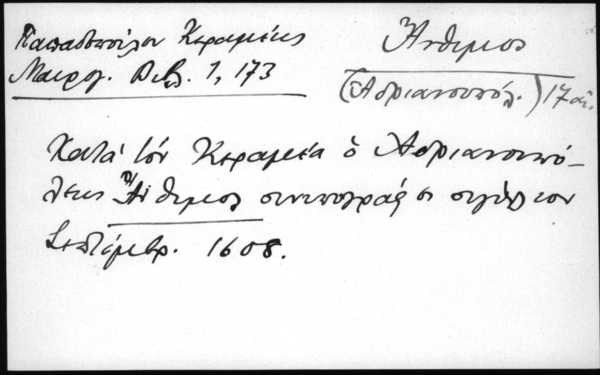 Παπαδοπούλου Κεραμέως
Μαυρογ. Βιβλ. 1, 173
Ἄνθιμος
(Ἀδριανουπόλ.) 17 αἰ.
Κατὰ τὸν Κεραμέα ὁ Ἀδριανουπό-
λεως Ἄνθιμος συνυπογράφει σιγίλλιον
Σεπτέμβρ. 1608.